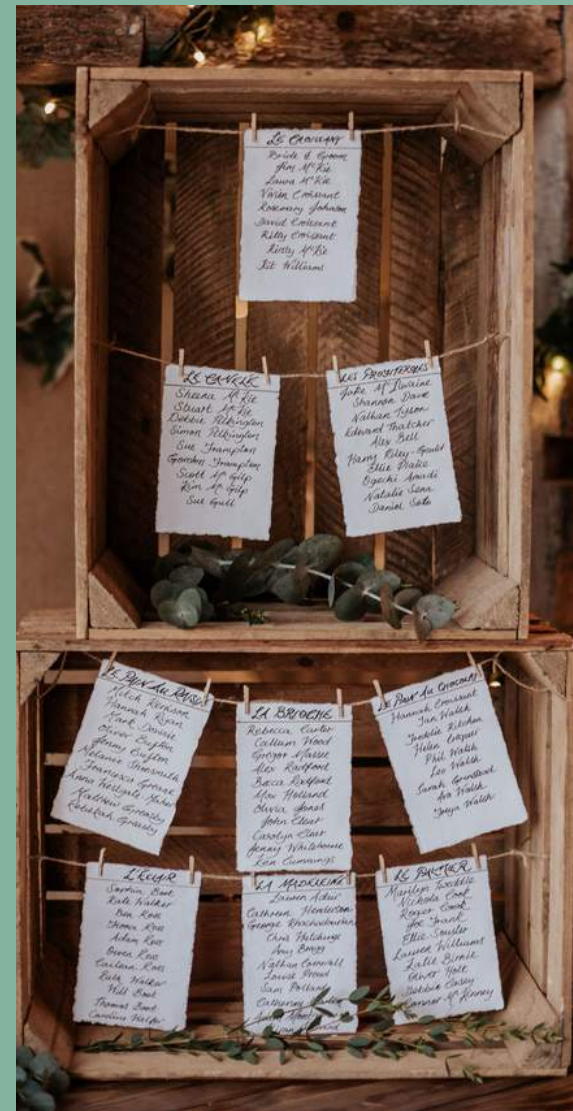 LE CROISSANT
Bride & Groom
Jim McKie
Laura McKie
Vivien Croissant
Rosemary Johnson
David Croissant
Kitty Croissant
Kirsty McKie
Kit Williams
LE CANELÉ
Sheena McKie
Stuart McKie
Debbie Pilkington
Simon Pilkington
Sue Frampton
Gordon Frampton
Scott McGilp
Kim McGilp
Sue Gull
LES
Jake McIlwaine
Shannon Dave
Nathan Tyson
Edward Thatcher
Alex Bell
Harry Riley-Gould
Ellie Drake
Ogechi Amadi
Natalie Senn
Daniel Soto
LE PAIN AU RAISIN
Mitch
Hannah Ryan
Mark Davies
Oliver Buften
Jenny Buften
Melanie Shoesmith
Francesca Greave
Anna Westgate
Matthew Greasby
Rebekah Greasby
LA BRIOCHE
Rebecca Carter
Callum Wood
Gregor Massie
Alex Radford
Becca Radford
Max Holland
Olivia Jones
John Cleet
Carolyn Cleet
Jenny Whitehouse
Len Cummings
LE PAIN AU CHOCOLAT
Hannah Croissant
Jan Walsh
Freddie Kitchen
Helen
Phil Walsh
Leo Walsh
Sarah
Ava Walsh
Walsh
L'ÉCLAIR
Sophie Boot
Kate Walker
Ben Ross
Ross
Adam Ross
Owen Ross
Ross
Ruth Walker
Will Boot
Thomas Boot
Caroline
LA MADELEINE
Lauren Adair
Cathryn Henderson
George
Chris Hitchings
Amy Bragg
Nathan Cornwall
Louise Proud
Sam Pollard
Catherine
LE PALMIER
Marilyn Tweddle
Nichola Cook
Roger Cook
Joe Frank
Ellie Souster
Lauren Williams
Katie Birnie
Oliver Holt
Debbie Casey
Connor McKinney